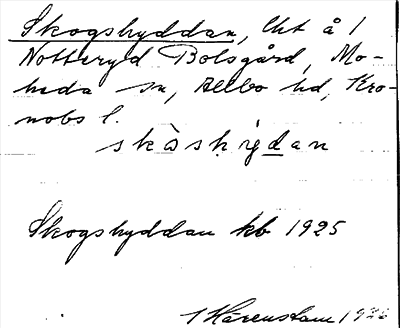 Skogshyddan, lht å 1
Notteryd Bolsgård, Mo-
heda sn, Allbo hd, Kro-
nobs l.
skɷ̀shy̨dan
Skogshyddan kb 1925
1 Härenstam 1926